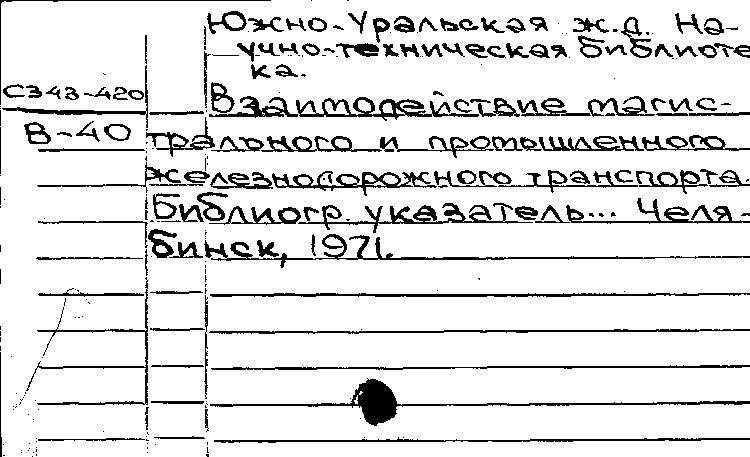 Южно-Уральская ж.д. На-
учно-техническая библиоте
ка.
С343-420
Взаимодействие магис-
В-40
трального и промышленного
железнодорожного транспорта.
Библиогр. указатель... Челя-
бинск, 1971.